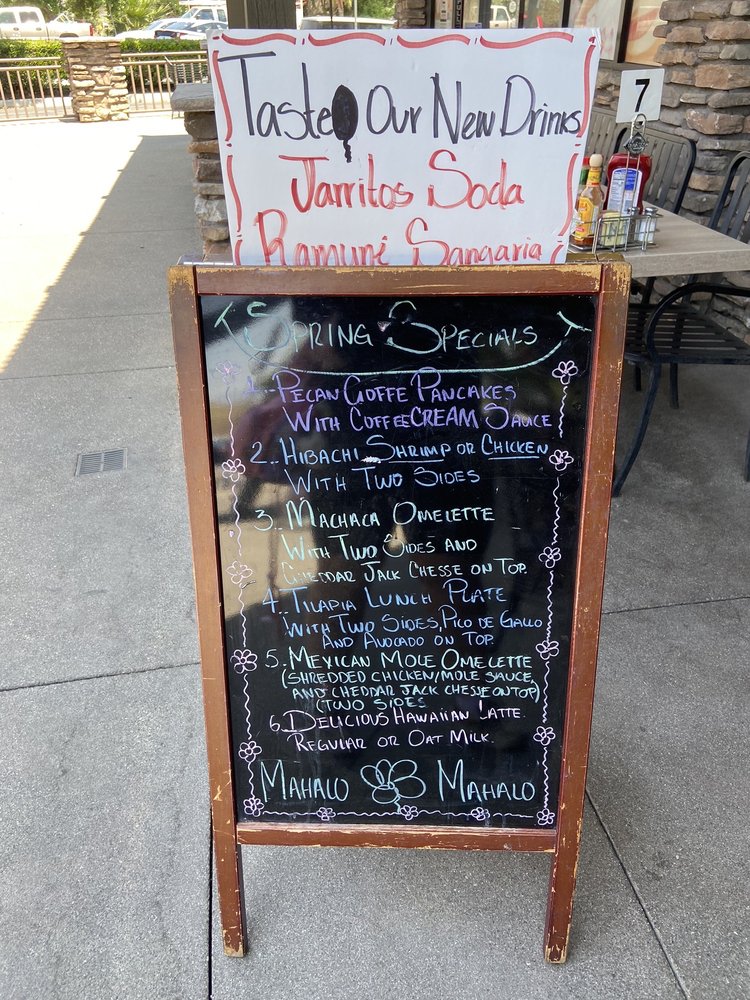 Taste Our New Drinks
Jarritos Soda
Ramuné Sangaria
7
Spring Specials
1. Pecan Coffe Pancakes
With CoffeeCREAM Sauce
2. Hibachi Shrimp or Chicken
With Two Sides
3. Machaca Omelette
With Two Sides and
Cheddar Jack Chesse on Top.
4. Tilapia Lunch Plate
With Two Sides, Pico de Gallo
And Avocado on Top.
5. Mexican Mole Omelette
(Shredded Chicken/Mole Sauce,
and Cheddar Jack Chesse on top)
(Two Sides
6. Delicious Hawaiian Latte.
Regular or Oat Milk.
Mahalo Mahalo